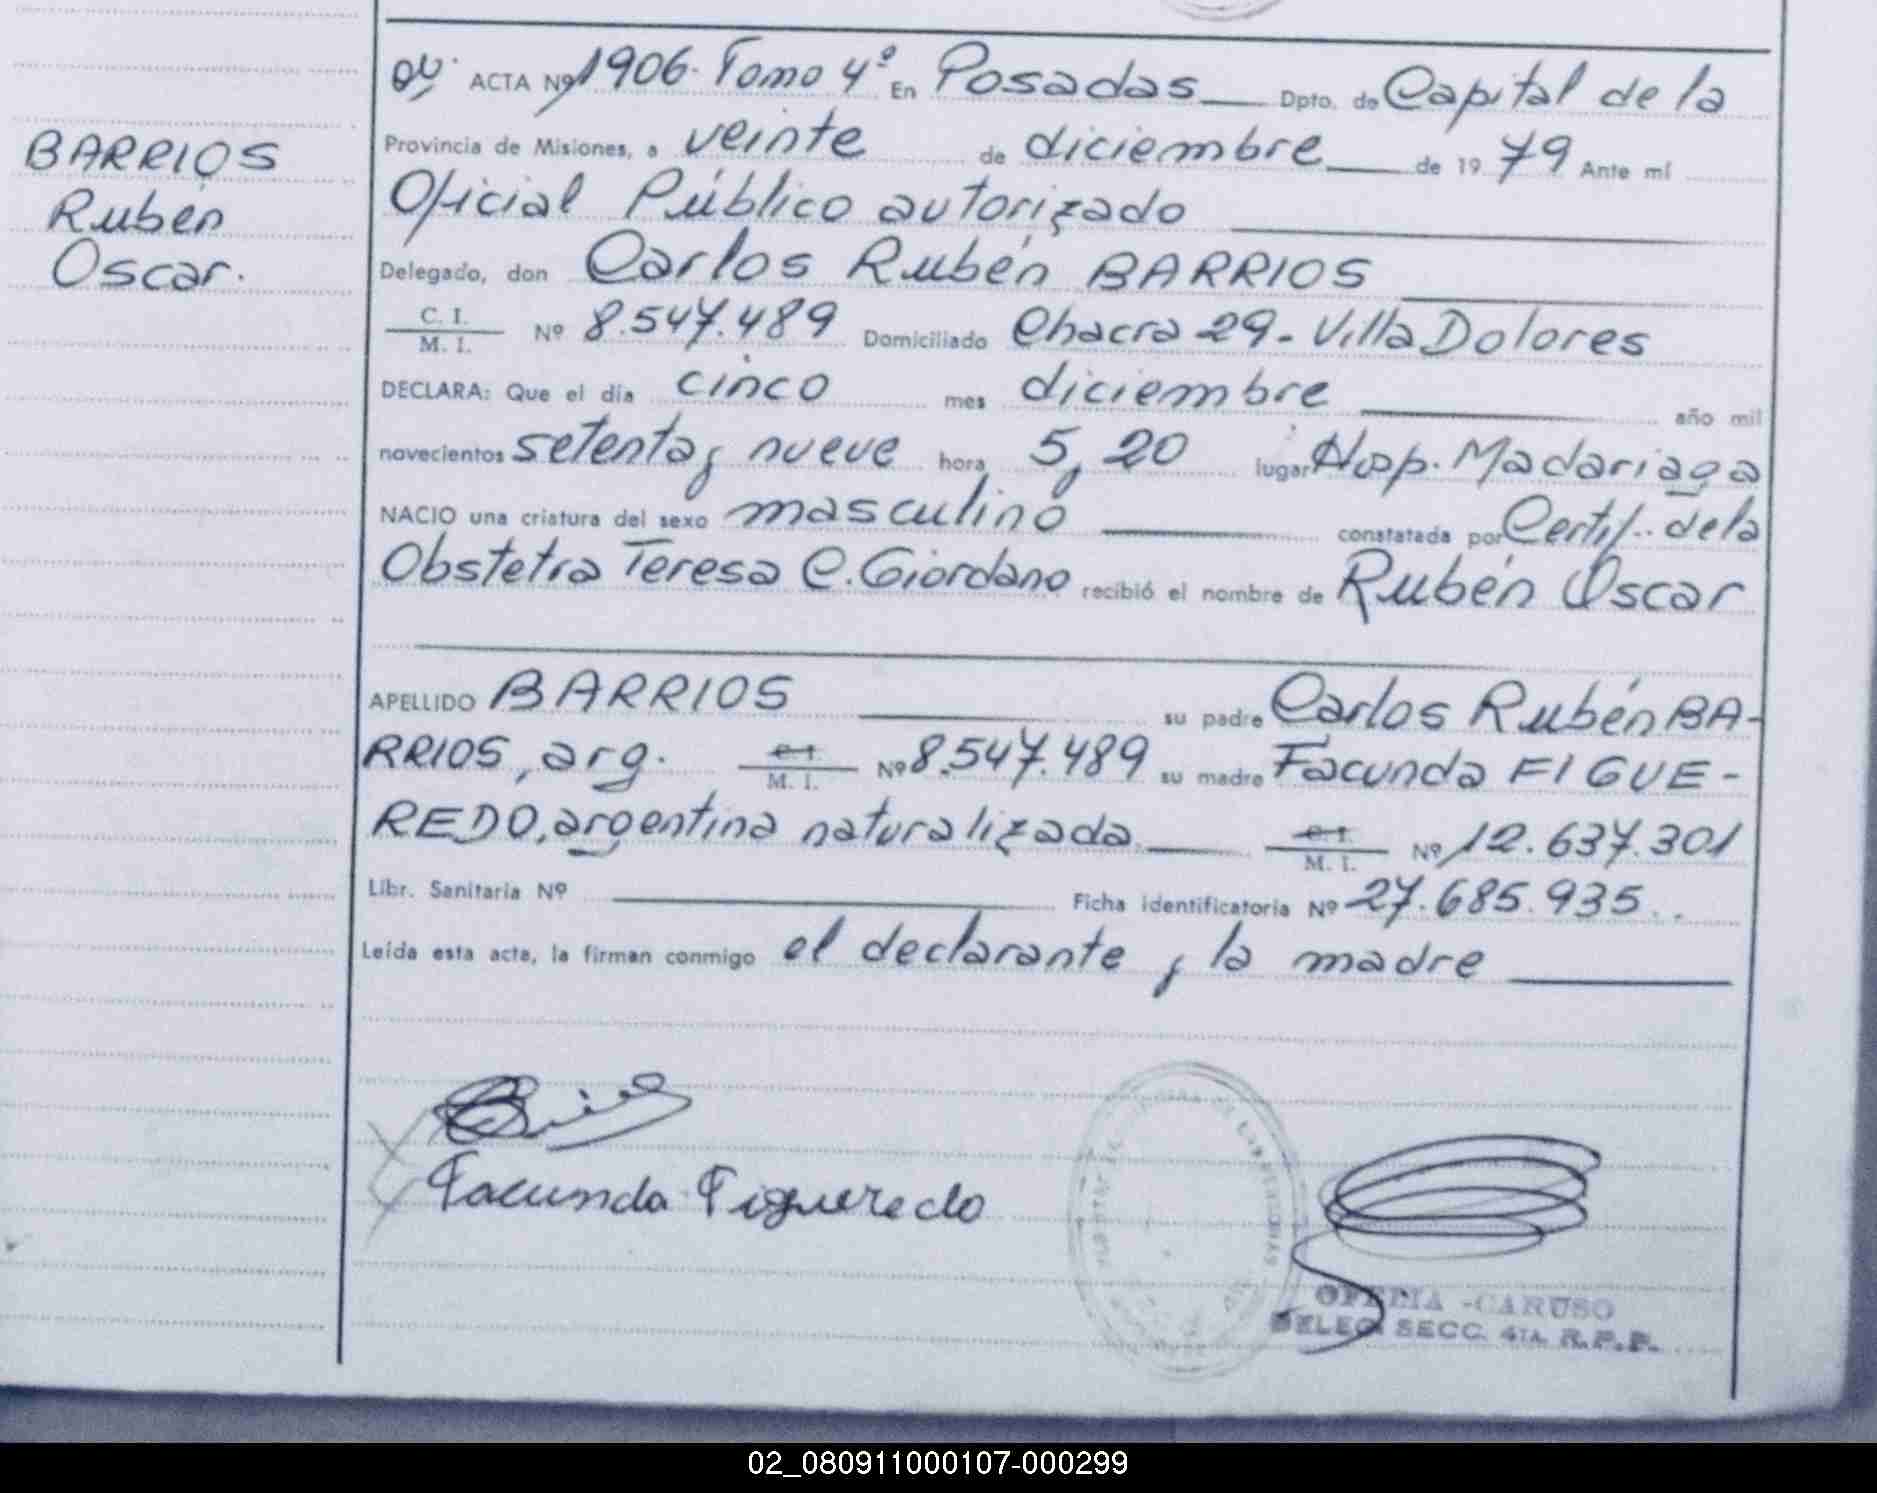 BARRIOS
Rubén
Oscar.
ACTA Nº 1906. Tomo 4º En Posadas Dpto. de Capital de la
Provincia de Misiones, a veinte de diciembre de 19 79 Ante mí
Oficial Público autorizado
Delegado, don Carlos Rubén BARRIOS
C. I.
M. I. Nº 8.547.489 Domiciliado Chacra 29 - Villa Dolores
DECLARA: Que el día cinco mes diciembre año mil
novecientos setenta y nueve hora 5,20 lugar Hosp. Madariaga
NACIO una criatura del sexo masculino constatada por Certif. de la
Obstetra Teresa C. Giordano recibió el nombre de Rubén Oscar
APELLIDO BARRIOS su padre Carlos Rubén BA-
RRIOS, arg. C. I. M. I. Nº 8.547.489 su madre Facunda FIGUE-
REDO, argentina naturalizada. C. I. M. I. Nº 12.637.301
Libr. Sanitaria Nº Ficha identificatoria Nº 27.685.935..
Leída esta acta, la firman conmigo el declarante y la madre
Facunda Figueredo
OFELIA -CARUSO
DELEG. SECC. 4TA. R.P.P.
02_080911000107-000299